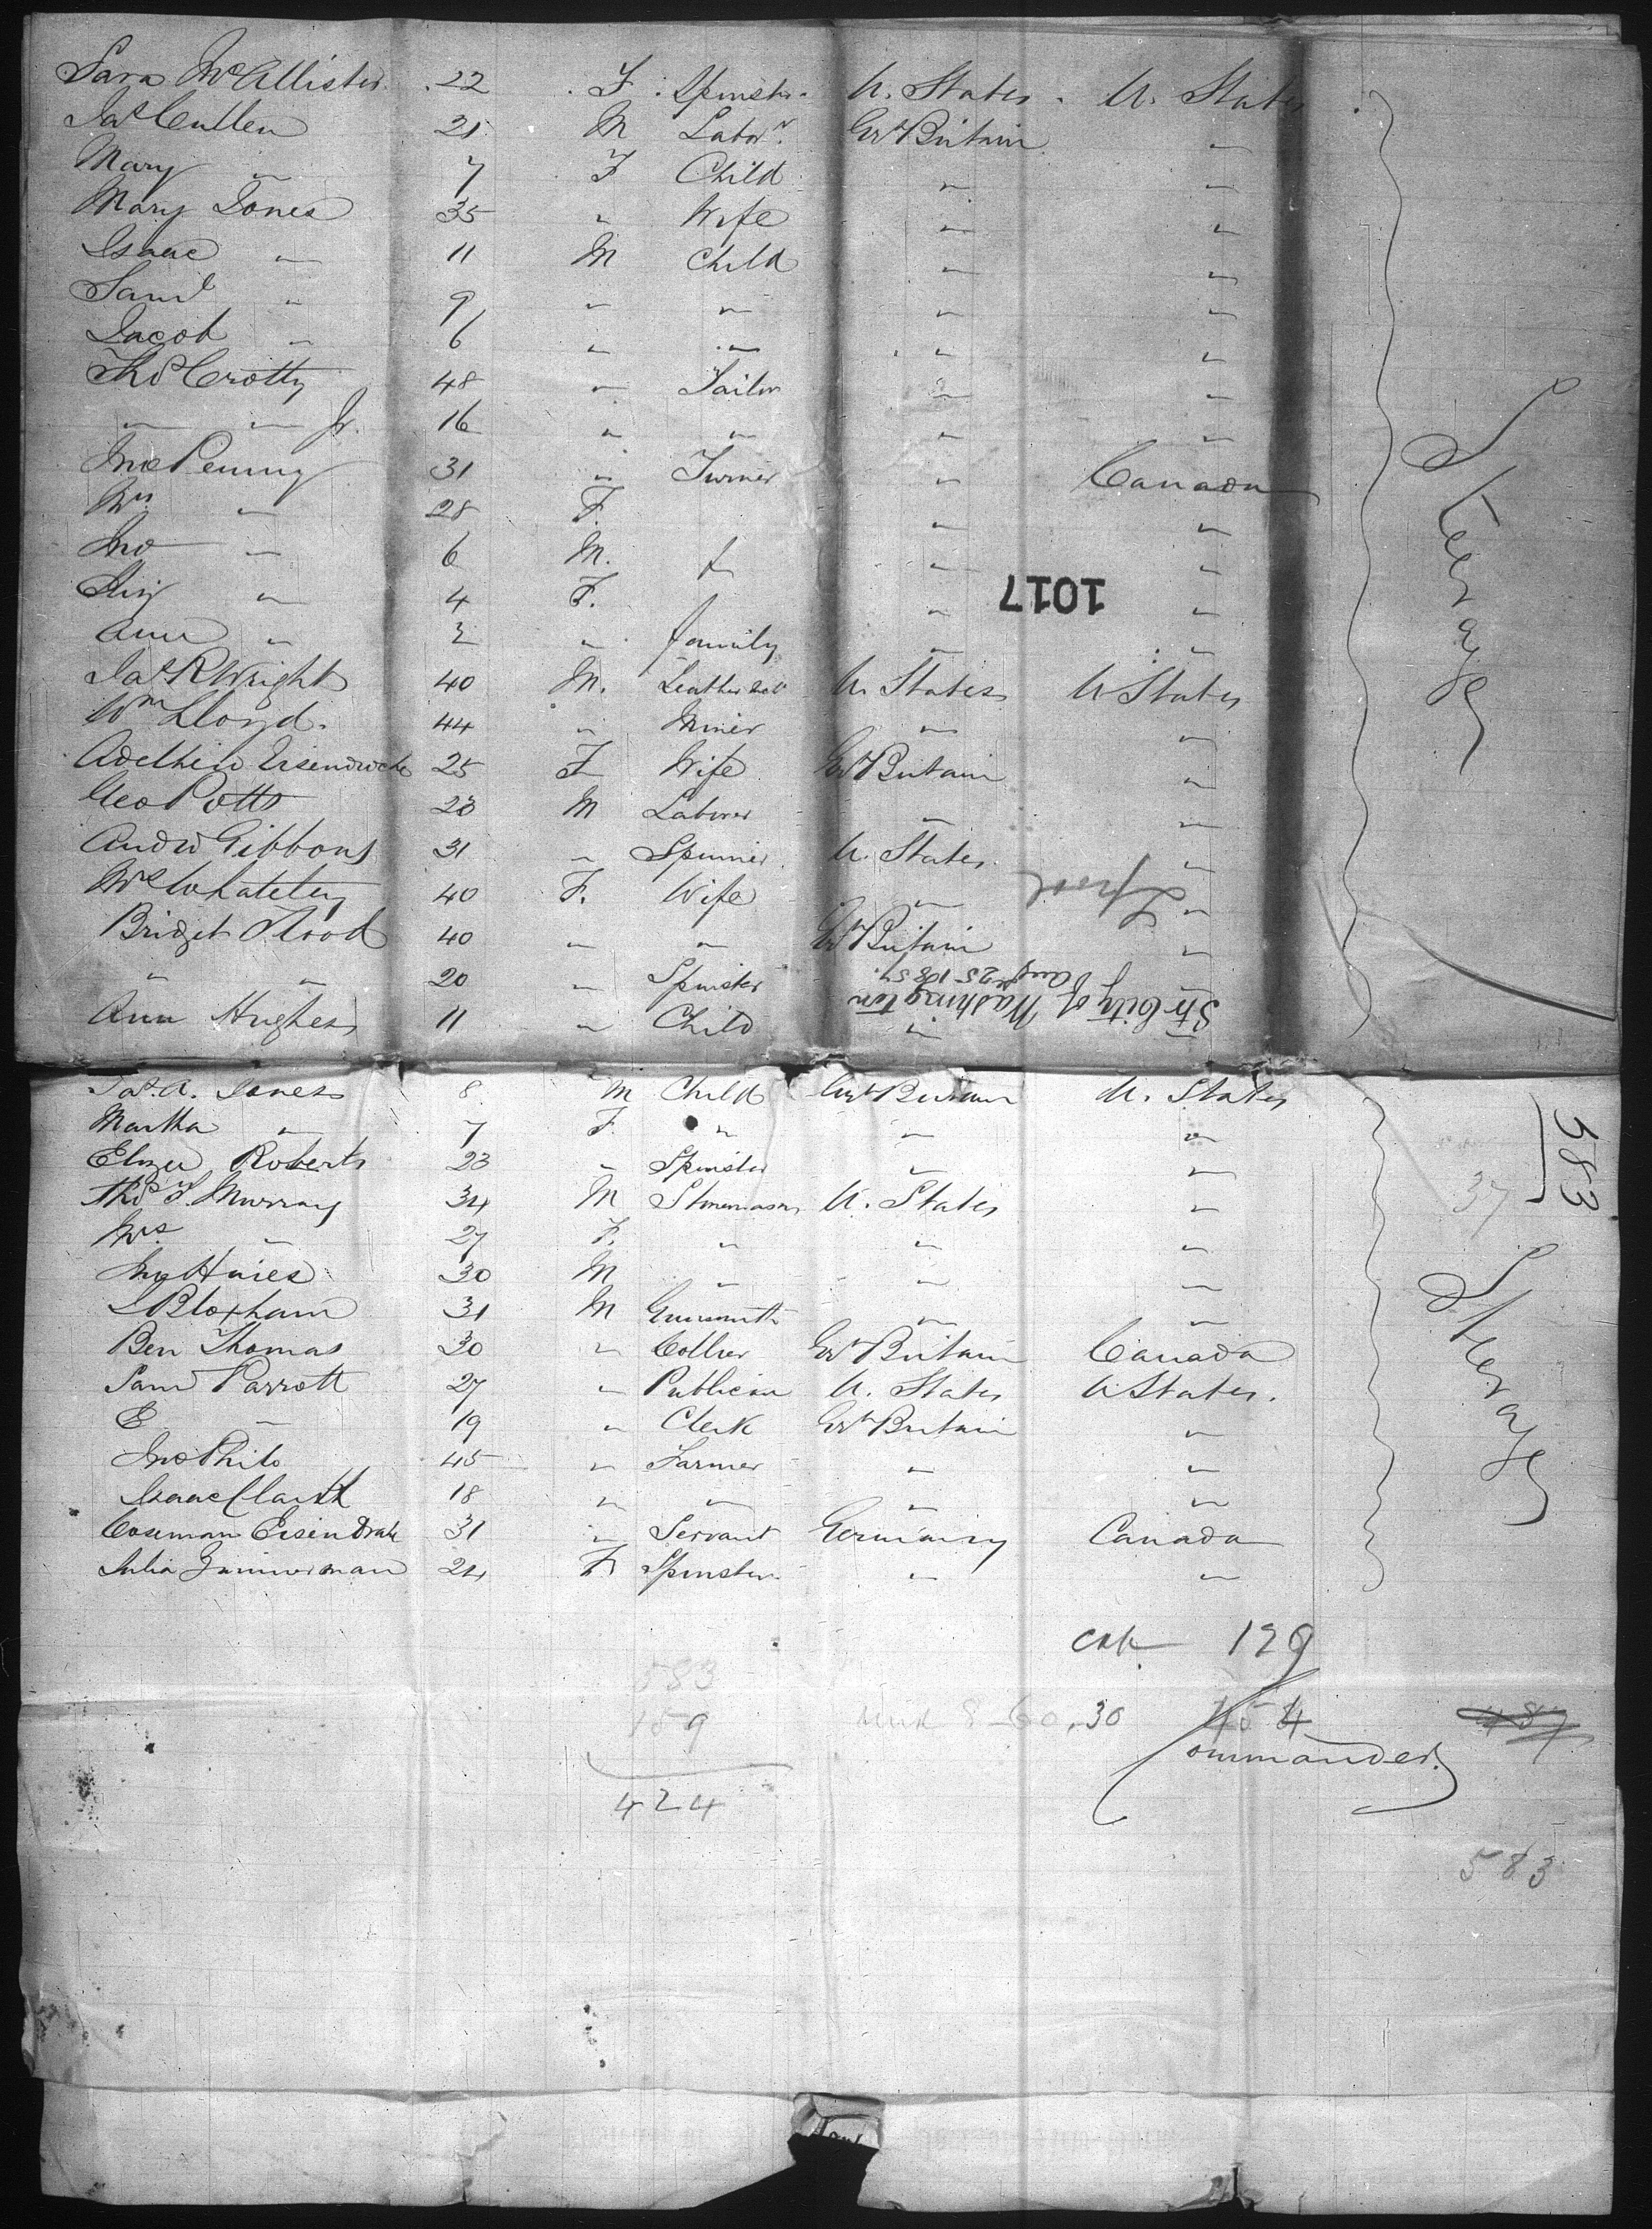 Sara McAllister 22 F Spinster U. States U. States
Jas Cullen 21 M Labor Gt Britain "
Mary " 7 F Child " "
Mary Jones 35 " Wife " "
Isaac " 11 M Child " "
Saml " 9 " " " "
Jacob " 6 " " " "
Thos Crotty 48 " Tailor " "
" " Jr. 16 " " " "
Jno Penny 31 " Turner " Canada
Mrs " 28 F. " "
Jno " 6 M. " "
" 4 F. " "
Ann " 2 " family " "
Jas R Wright 40 M. U. States U States
Wm Lloyd. 44 " Miner " "
25 F Wife Gt Britain "
Geo Potts 23 M Laborer " "
Andw Gibbons 31 " Spinner U. States "
Mrs Whateley 40 F. Wife " "
Bridget Flood 40 " " Gt Britain "
" " 20 " Spinster " "
Ann Hughes 11 " Child "
Steerage
1017
L'pool
Str City of Washington
Aug 25 1857.
Jas. A. Jones 8 M Child Gt Britain U. States
Martha " 7 F. " " "
Eliza Roberts 23 " Spinster " "
Thos F. Murray 34 M Stonemason U. States "
Mrs " 27 F. " " "
Jno Hines 30 M " " "
S Bloxham 31 M Gunsmith " "
Ben Thomas 30 " Collier Gt Britain Canada
Saml Parrott 27 " Publican U. States U States.
E " 19 " Clerk Gt Britain "
Jno Philo 45 " Farmer " "
Isaac 18 " " " "
Coseman Eisendrath 31 " Servant Germany Canada
Julia Zimmerman 24 F Spinster " "
Steerage
583
37
129
583
159
424
30
454
487
Commander.
583